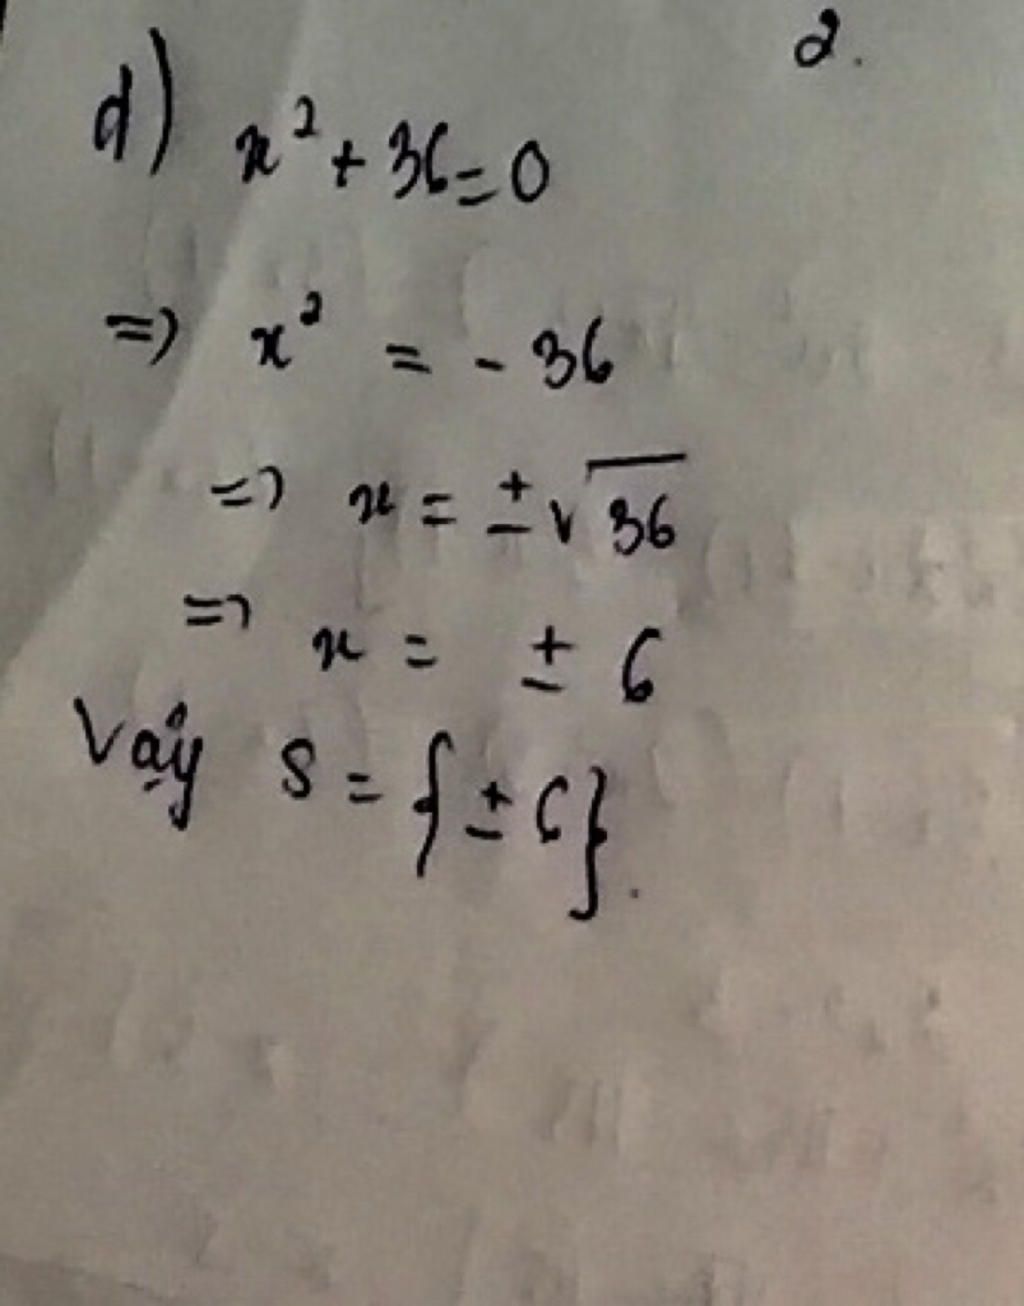 2.
d) x² + 36 = 0
=> x² = - 36
=> x = ± √36
=> x = ± 6
Vậy S = {± 6}.